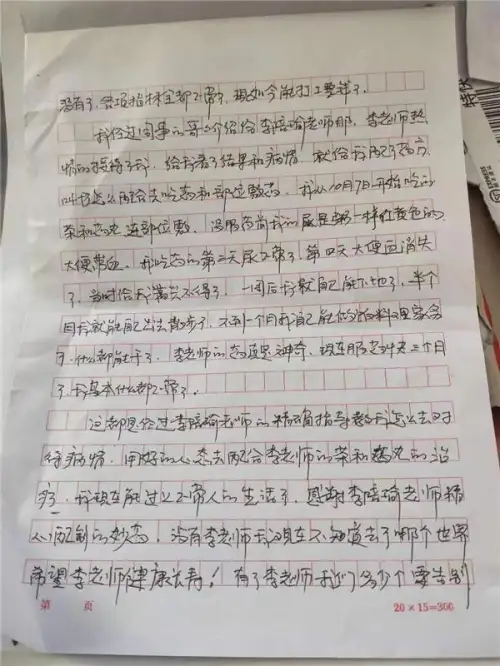 没有了，各项指标全部正常了，现如今能打工挣钱了。
我经过同事的哥介绍给李培瑜老师那，李老师热
情的接待了我，给我看了结果和病情，就给我配了药方，
叫我怎么配合去吃药和部位敷药，我从10月7日开始吃的
茶和药丸，连部位敷，没服药前我的尿是粥一样的黄色的，
大便带血，我吃药的第三天尿正常了，第四天大便血消失
了，当时给我满意不得了，一周后我就自己能下地了，半个
月我就能自己出去散步了，不到一个月我自己能做饭料理家务
了，什么都能干了，李老师的药真是神奇，现在服药快三个月
了，我基本什么都正常了。
这都是经过李培瑜老师的精确指导教我怎么去对
待病情，用好的心态去配合李老师的茶和药丸的治
疗，我现在能过上正常人的生活了，感谢李培瑜老师精
心配制的妙药，没有李老师我现在不知道去了哪个世界
希望李老师健康长寿！有了李老师我们多少个要告别
第 页
20×15=300
特快